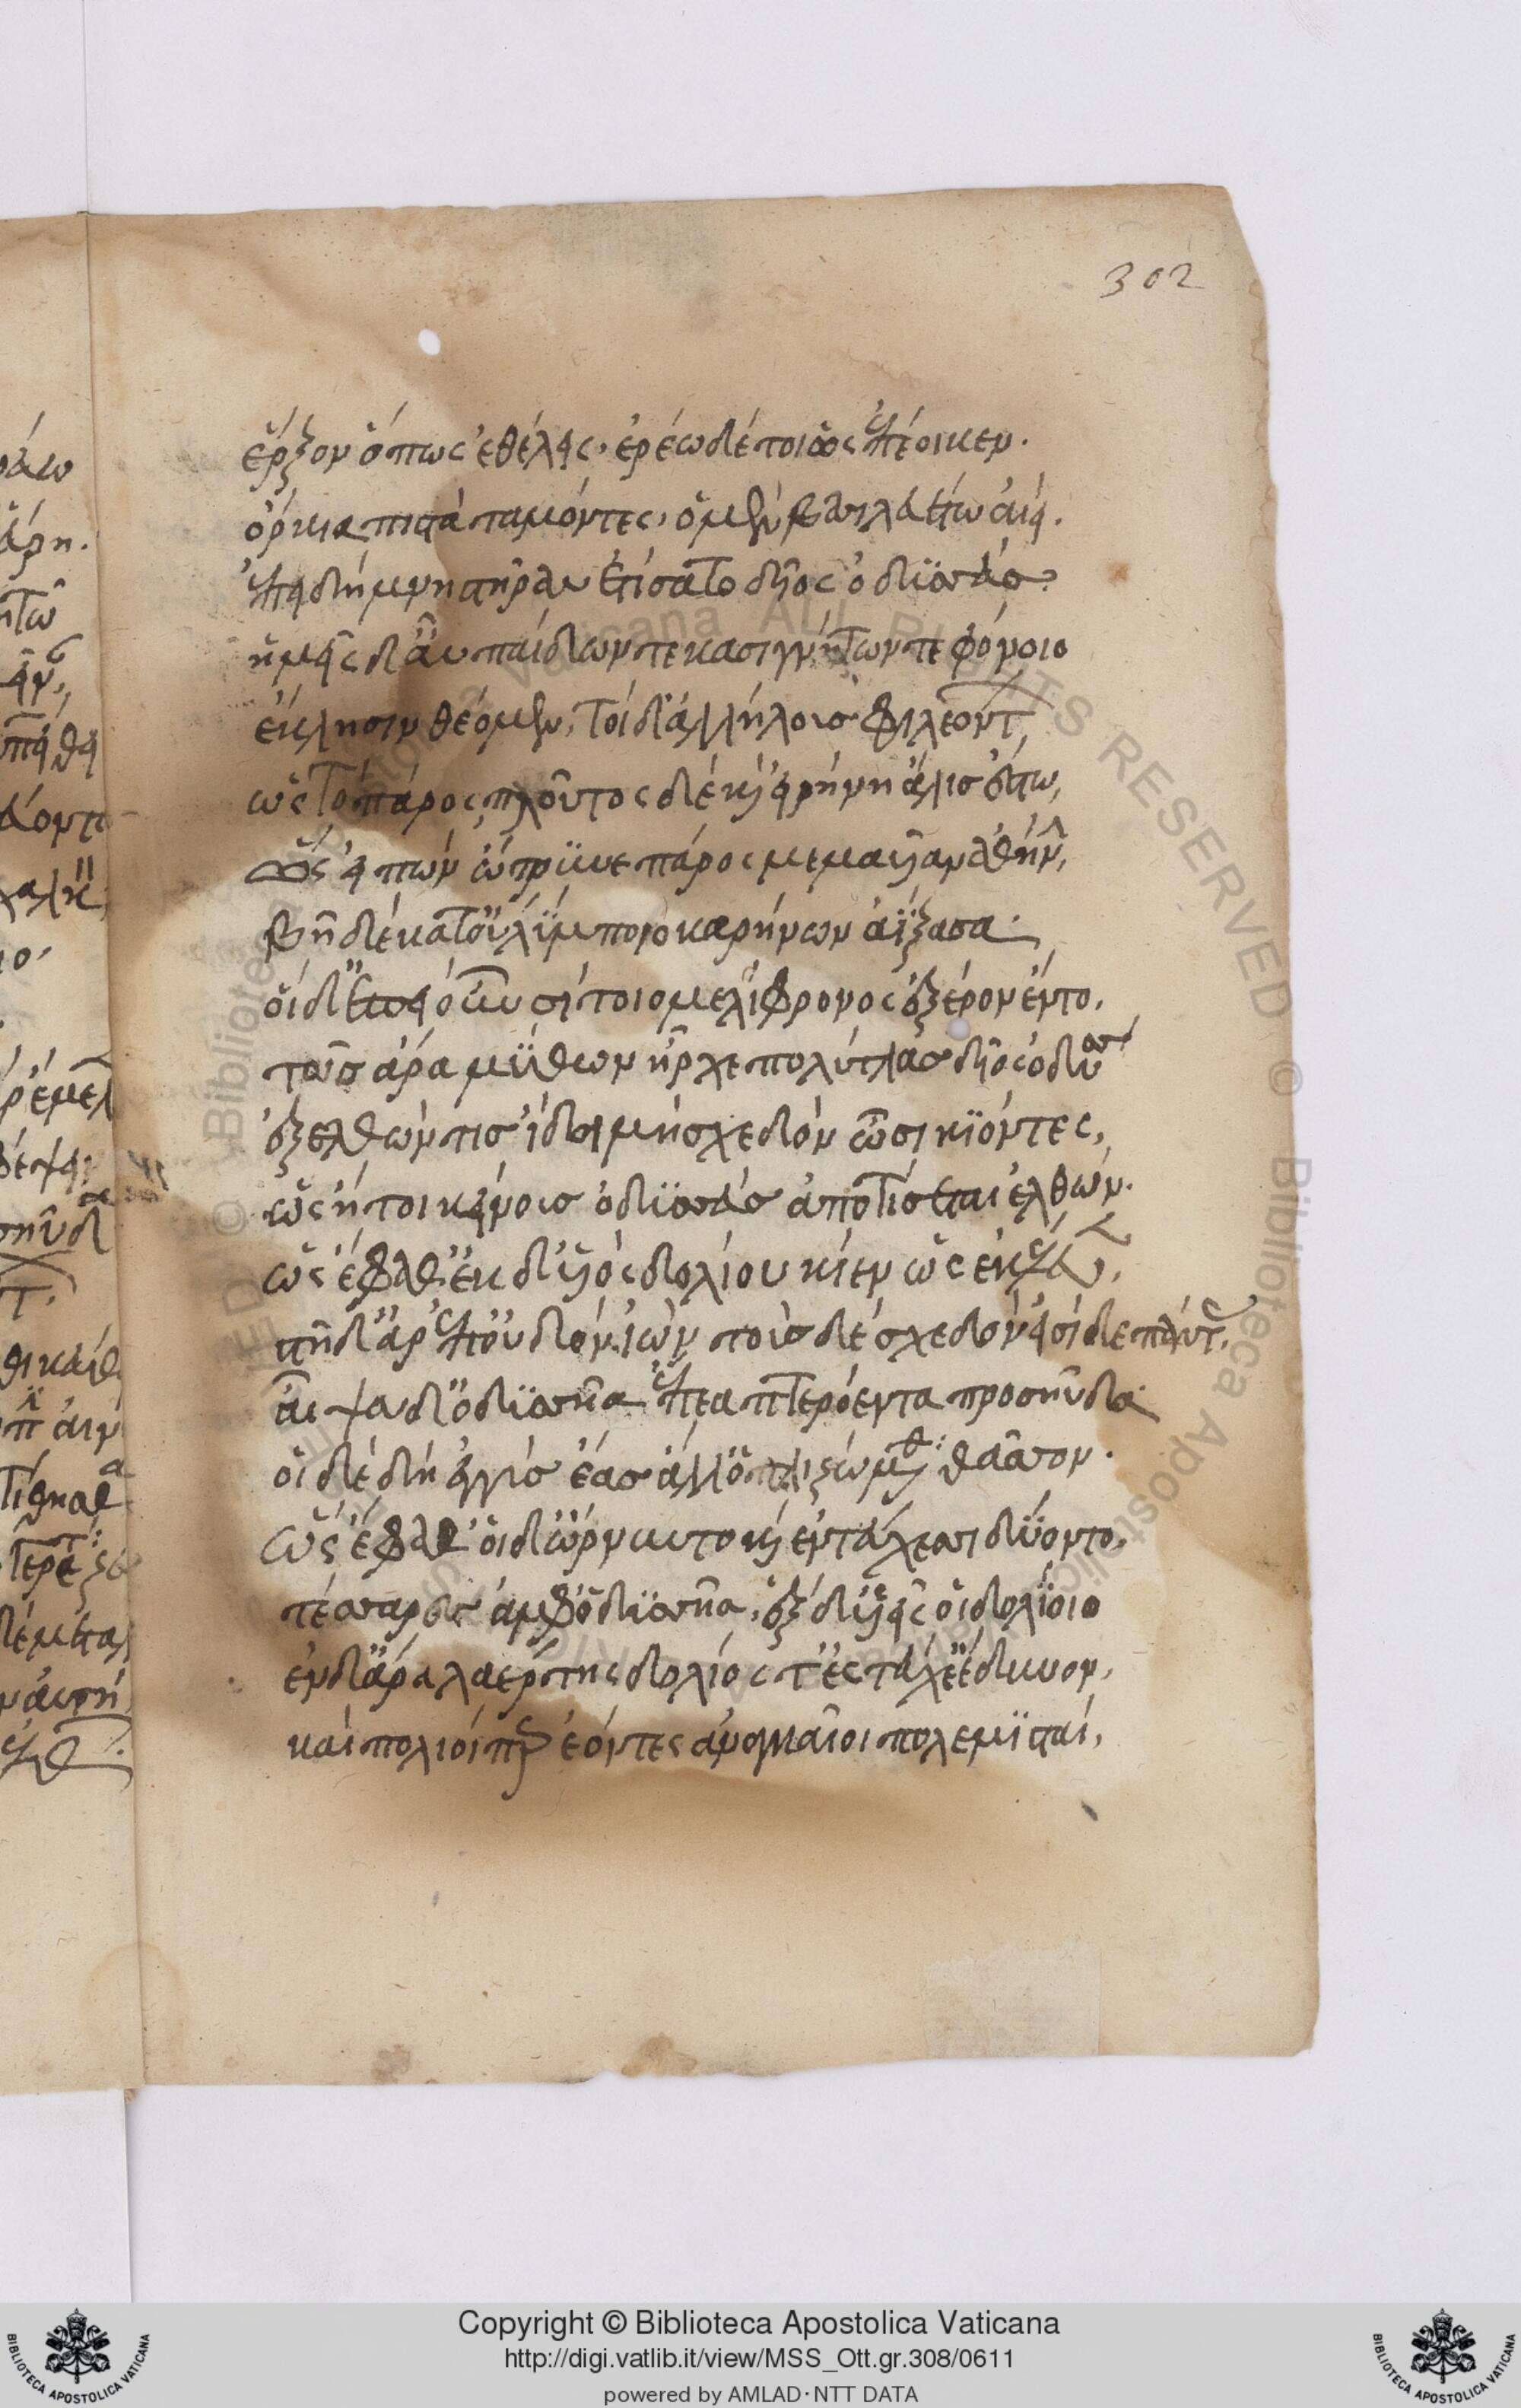 302
ἔρξον ὅπως ἐθέλεις· ἐρέω δέ τοι ὡς ἐπέοικεν.
ὅρκια πιστὰ ταμόντες, ὁ μὲν βασιλευέτω αἰεί.
ἐπειδὴ μνηστῆρας ἐτίσατο δῖος ὀδϋσσεύς
ἡμεῖς δ' αὖ παίδων τε κασιγνήτων τε φόνοιο
ἔκλησιν θέομεν, τοὶ δ' ἀλλήλους φιλεόντ
ὡς τὸ πάρος, πλοῦτος δὲ καὶ εἰρήνη ἅλις ἔστω,
ὣς εἰπὼν ὤτρϋνε πάρος μεμαυῖαν ἀθήν,
βῆ δὲ κατ' οὐλΰμποιο καρήνων ἀΐξασα.
οἱ δ' ἐπεὶ οὖν σίτοιο μελίφρονος ἐξ ἔρον ἕντο.
τοῖς ἄρα μΰθων ἦρχε πολύτλας δῖος ὀδυσσ
ἐξελθών τις ἴδοι μὴ σχεδὸν ὦσι κϊόντες,
ὣς ἔφαθ' ἐκ δ' υἱὸς δολίου κίεν ὡς ἐκέλ,
στῆ δ' ἄρ' ἐπ' οὐδὸν ἰών, τοὺς δὲ σχεδὸν εἴσιδε πάντ,
αἶψα δ' ὀδϋσσῆα ἔπεα πτερόεντα προσηύδα
οἱ δὲ δὴ ἐγγὺς ἔασ' ἀλλ' ὁπλιζώμεθ θᾶσσον.
ὣς ἔφαθ' οἱ δ' ὤρνυντο καὶ ἐν τεύχεσι δΰοντο.
τέσσαρες ἀμφ' ὀδϋσσῆα, ἓξ δ' υἱεῖς οἱ δολΐοιο
ἐν δ' ἄρα λαέρτης δολίος τ' ἐς τεύχε' ἔδυνον,
καὶ πολιοί περ ἐόντες ἀναγκαῖοι πολεμϊσταί,
Copyright © Biblioteca Apostolica Vaticana
http://digi.vatlib.it/view/MSS_Ott.gr.308/0611
powered by AMLAD·NTT DATA